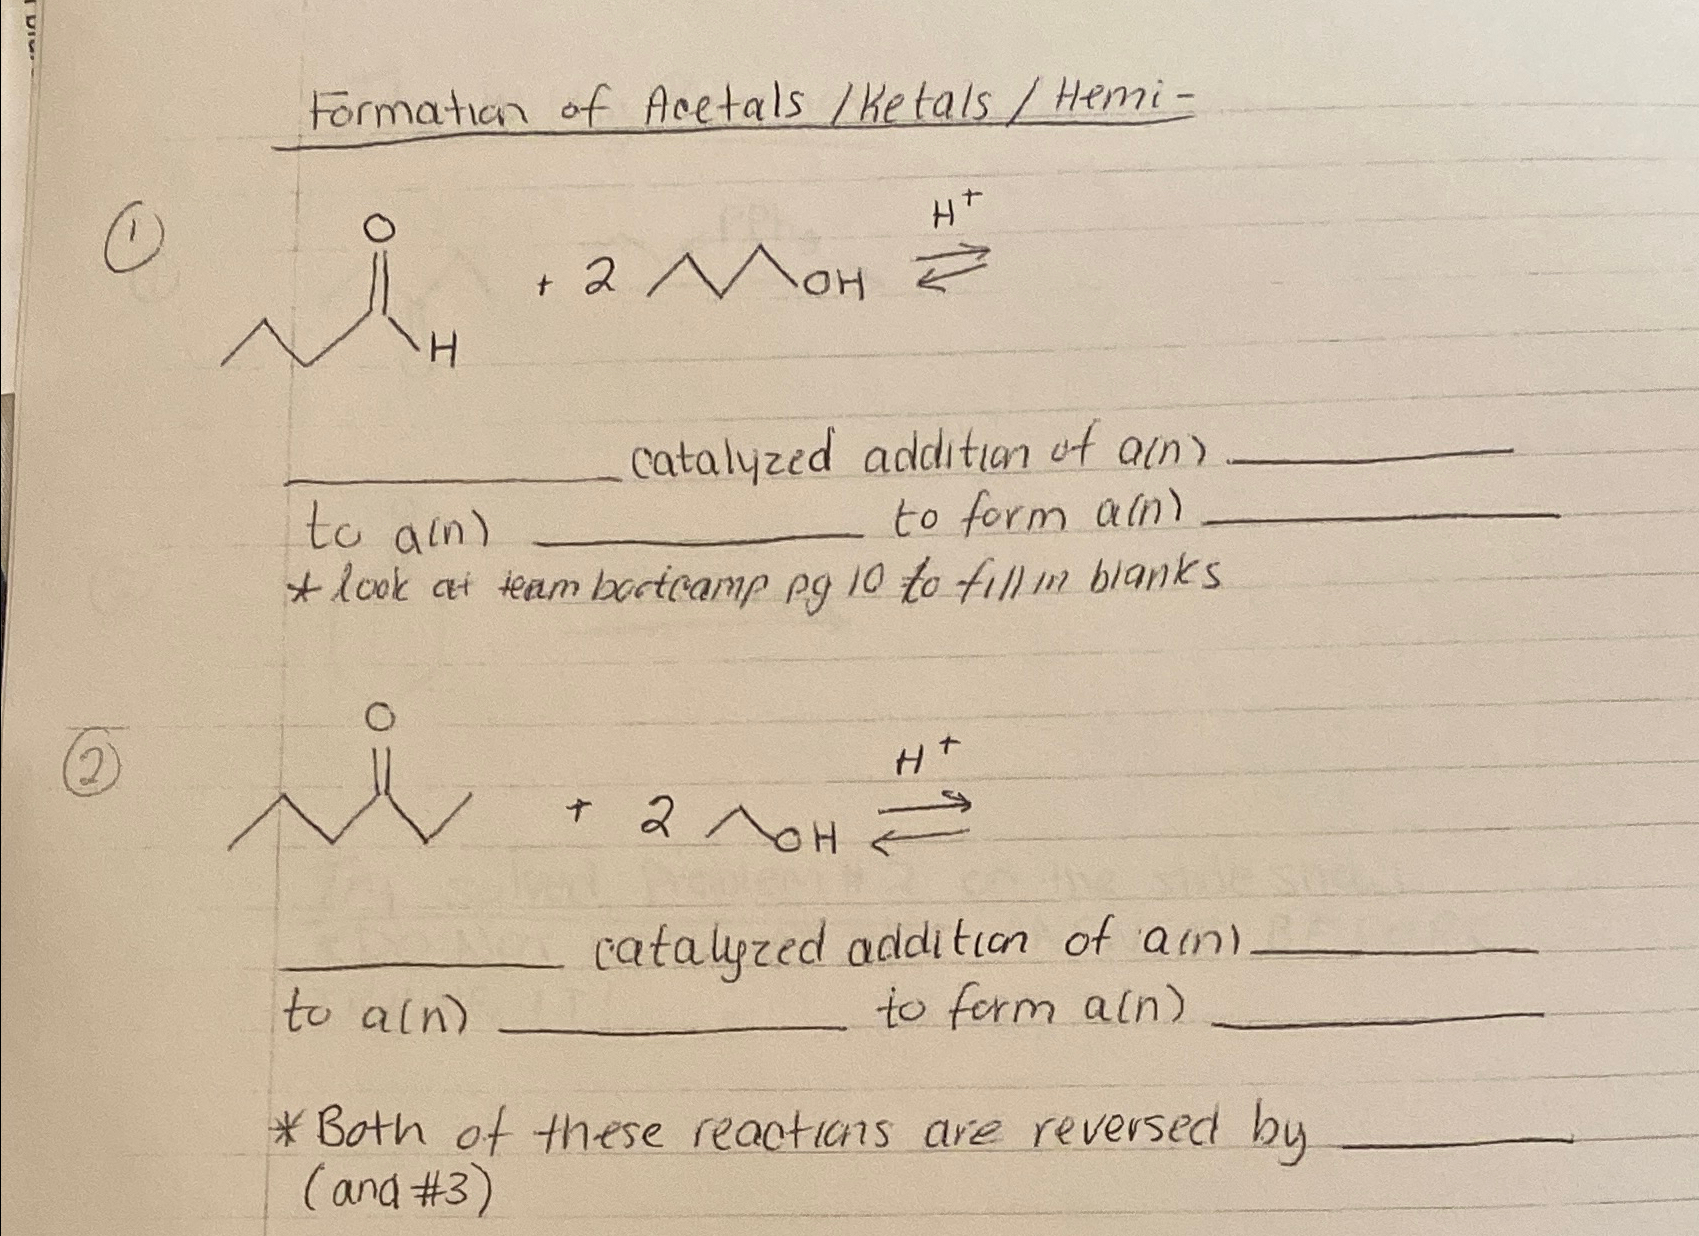 Formation of Acetals / Ketals / Hemi-
① O
H
+ 2 OH
H⁺
⇌
____________ catalyzed addition of a(n) ____________
to a(n) ____________ to form a(n) ____________
* look at team bootcamp pg 10 to fill in blanks
② O
+ 2 OH
H⁺
⇌
____________ catalyzed addition of a(n) ____________
to a(n) ____________ to form a(n) ____________
* Both of these reactions are reversed by ____________
(and #3)